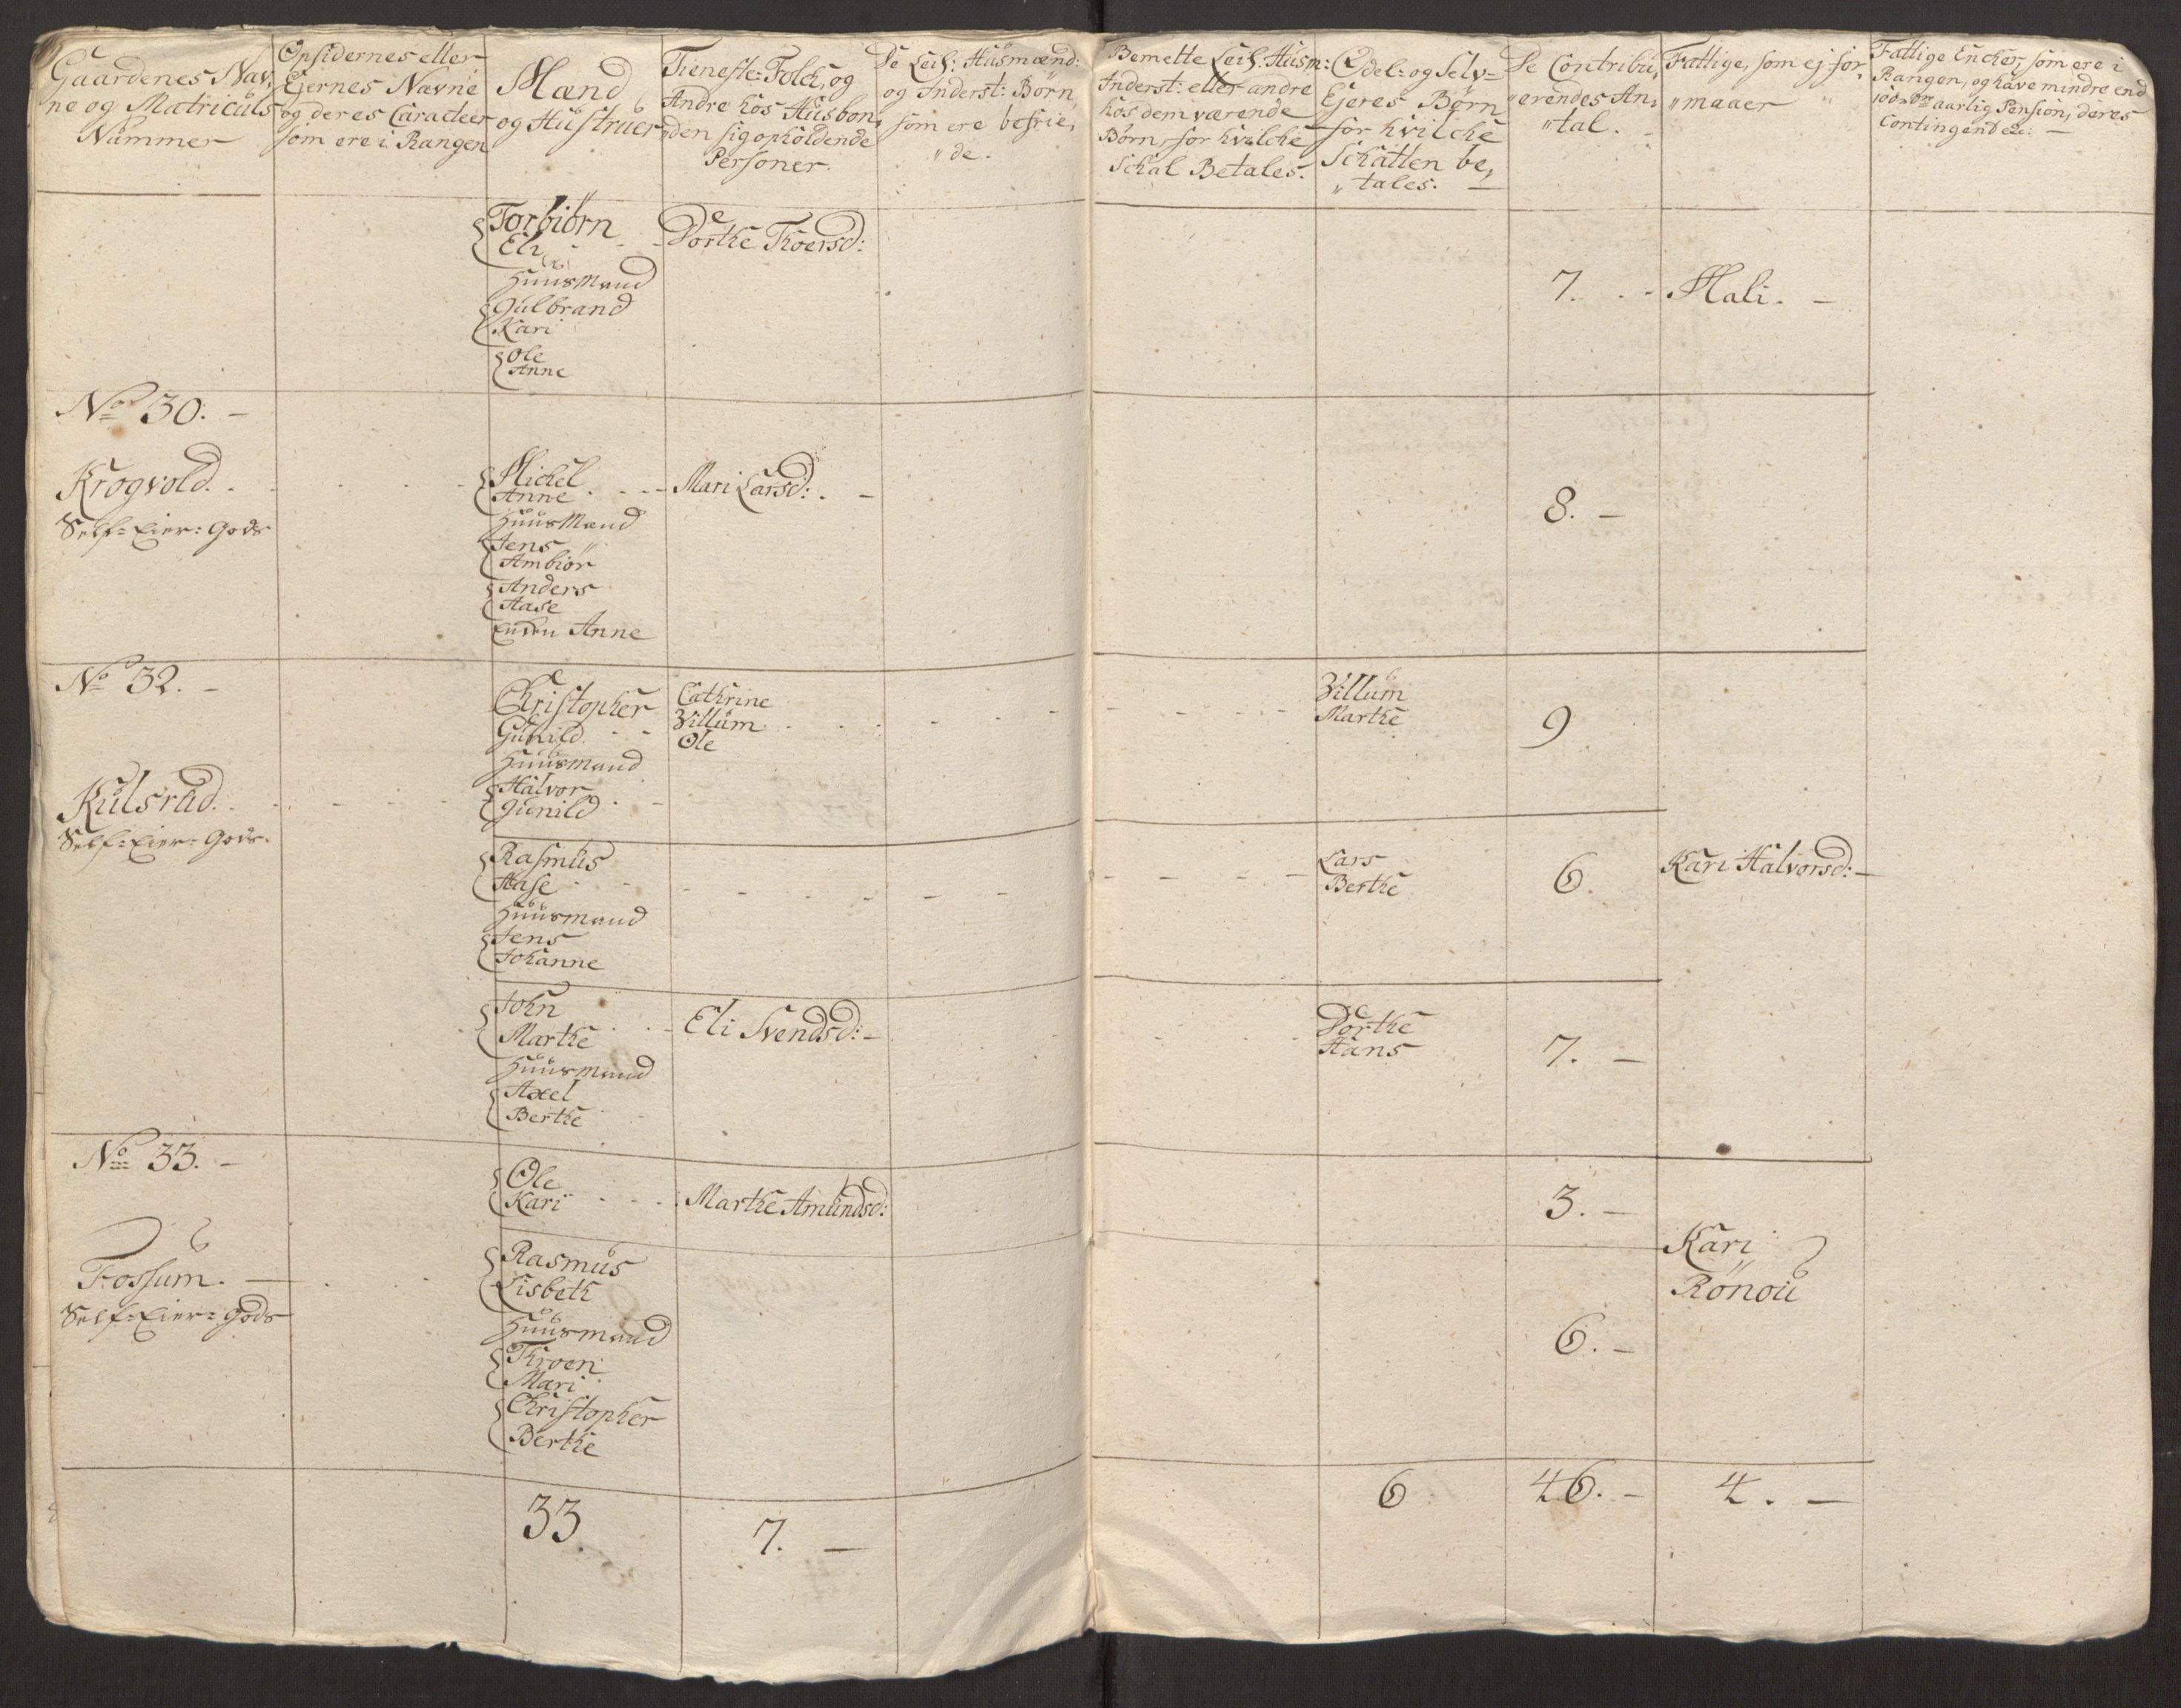 Gaardenes Nav,
ne og Matriculs
Nummer
Opsidernes eller
Ejernes Navne
og deres Caracteer
som ere i Rangen
Mænd
og Hustruer
Tieneste-Folck, og
Andre hos Husbon,
den sig opholdende
Personer.
De Leil: Husmænd:
og Inderst: Børn,
som ere befrie,
"de.
Bemette Leil: Husm:
Inderst: eller andre
hos dem værende
Børn, for hvilche
Schal Betales.
Odel- og Selv-
Ejeres Børn
for hvilche
Schatten be,
"tales.
De Contribu,
"erendes An,
"tal.
Fattige, som ej for,
"maaer
Fattige Encker, som ere i
Rangen, og have mindre end
100 dr aarlig Pension, deres
Contingent etc: —
Torbiörn
Eli
Dorthe Thoersd:
Huusmand
Gulbrand
Kari
Ole
Anne
7. - Mali. -
No 30. -
Krogvold.
Self-Eier-Gods
Michel
Anne - - - Mari Larsd: . -
Huusmand
Jens
Ambiör
Anders
Aase
Enken Anne
8. -
No 32. -
Kulsrud.
Self-Eier-Gods.
Christopher
Gunild. - -
Cathrine
Villum
Ole
Huusmand
Halvor
Gunild
Villum
Marthe
9
Rasmus
Aase
Huusmand
Jens
Johanne
Lars
Berthe
6.
Kari Halvorsd: -
John
Marthe
Eli Svendsd: -
Huusmand
Axel
Berthe
Dorthe
Hans
7. -
No 33. -
Fossum. —
Self-Eier-Gods
Ole
Kari - - - Marthe Amundsd:
3. -
Rasmus
Lisbeth
Huusmand
Throen
Mari
Christopher
Berthe
6. -
Kari
Rönou
33.
7. —
6
46. -
4. —